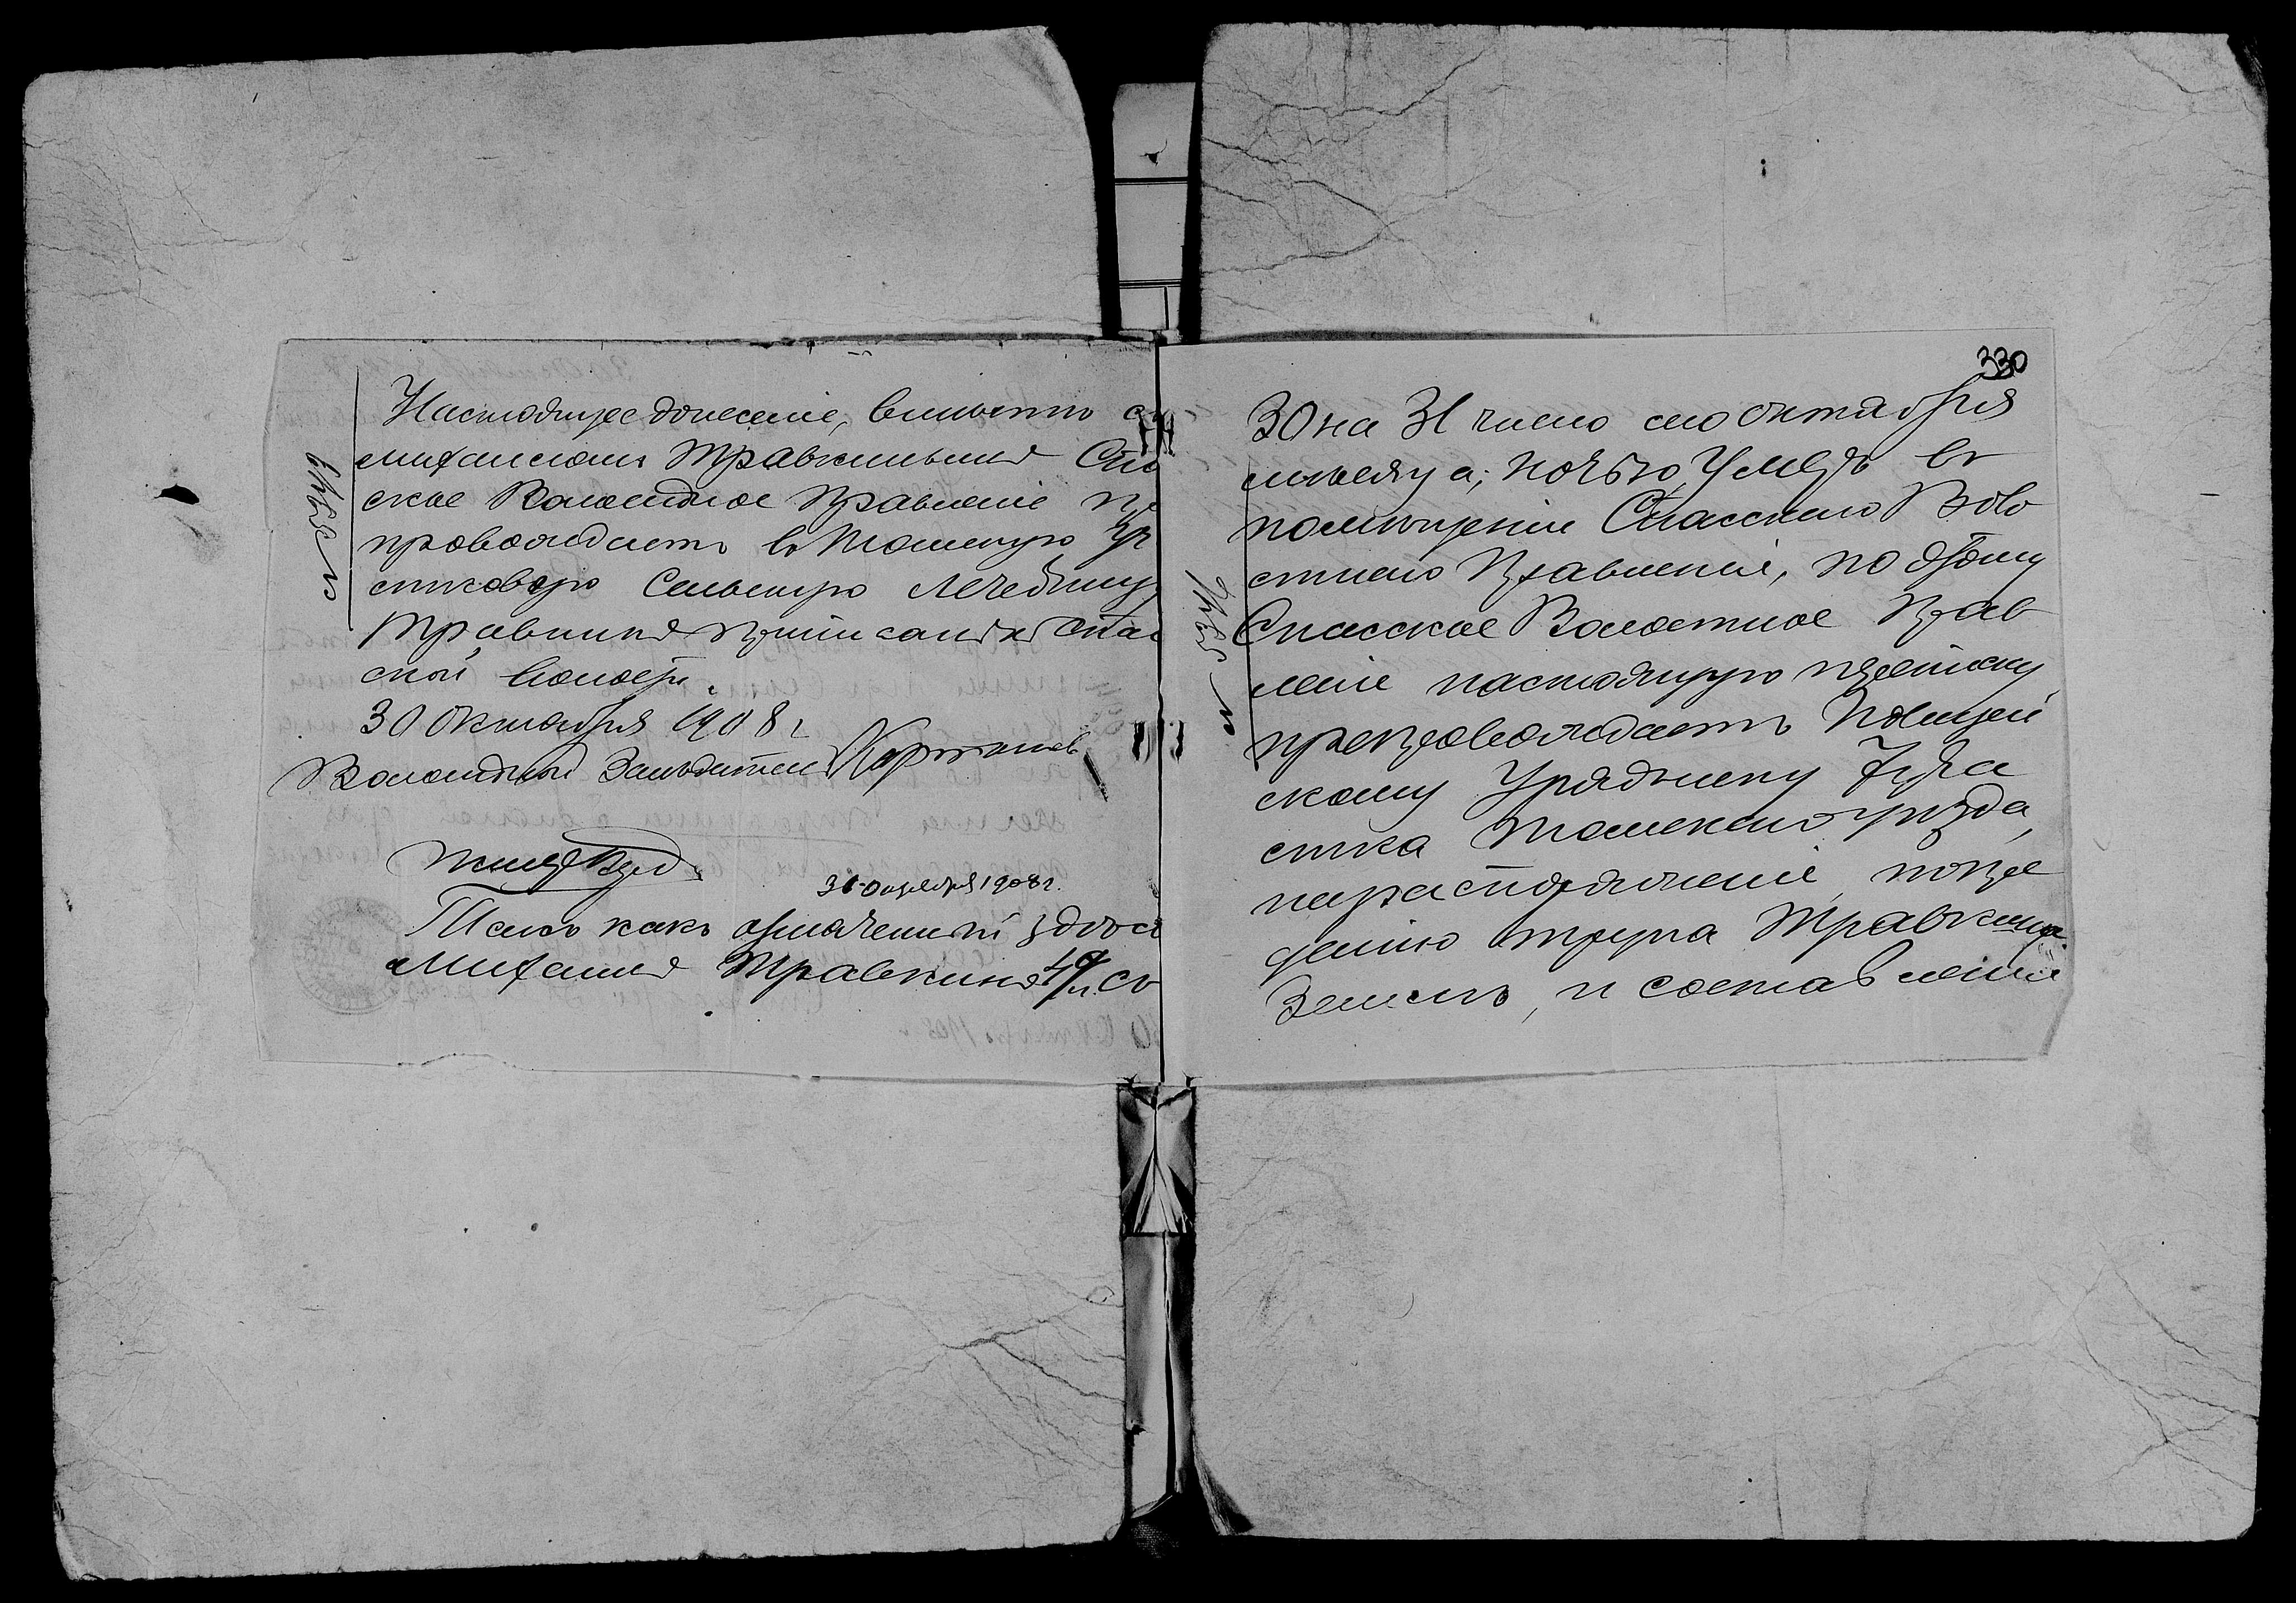 Настоящее донесеніе, вмѣстѣ съ
Михаиломъ Травкинымъ Спас
ское Волостное Правленіе пре
провождаетъ въ Томскую Уча
стковую Сельскую Лечебницу
Травкинъ приписанъ къ Спас
ской волости.
30 Октября 1908 г.
Волостной Засѣдатель
№ 3943
31 Октября 1908 г.
Такъ какъ означенный здѣсь
Михаилъ Травкинъ съ
330
30 на 31 число сего октября
мѣсяца, ночью, умеръ въ
помѣщеніи Спасскаго Воло
стнаго Правленія, поэтому
Спасское Волостное Прав
леніе настоящую переписку
препровождаетъ Полицей
скому Уряднику 7 уча
стка Томскаго уѣзда,
на распоряженіе, по пре
данію трупа Травкина
Землѣ, и составленіи